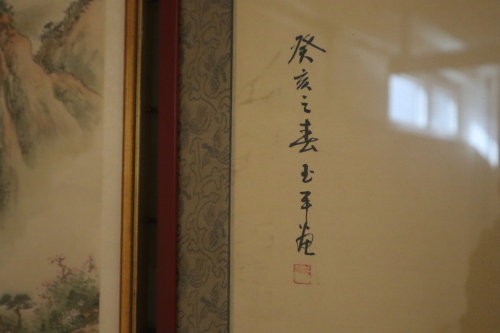 癸亥之春玉平画